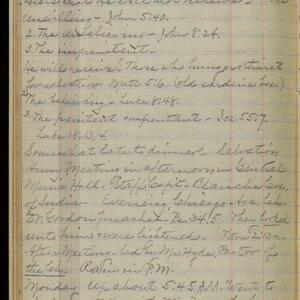 unwilling - John 5:40.
2. The Unbelieving - John 8:24.
3. The impenitent.
He will receive: Those who hunger & thirst
for salvation. Matt 5:6. (old sardine box)
2 The believing. Luke 8:48.
3. The penitent or repentant - Isa 55:7.
Luke 18:13,14.
Somewhat late to dinner. Salvation
Army Meeting in afternoon in Central
Music Hall. Staff Capt. Blanche Cox,
of India. Evening Chicago Ave. Ch.
Dr Gordon preached. Ps 34:5. They looked
unto him & were lightened.
After Meeting led by Mr Hyde, Pastor of
the Ch. Rain in P.M.
Monday Up about 5:45 A.M. Went to